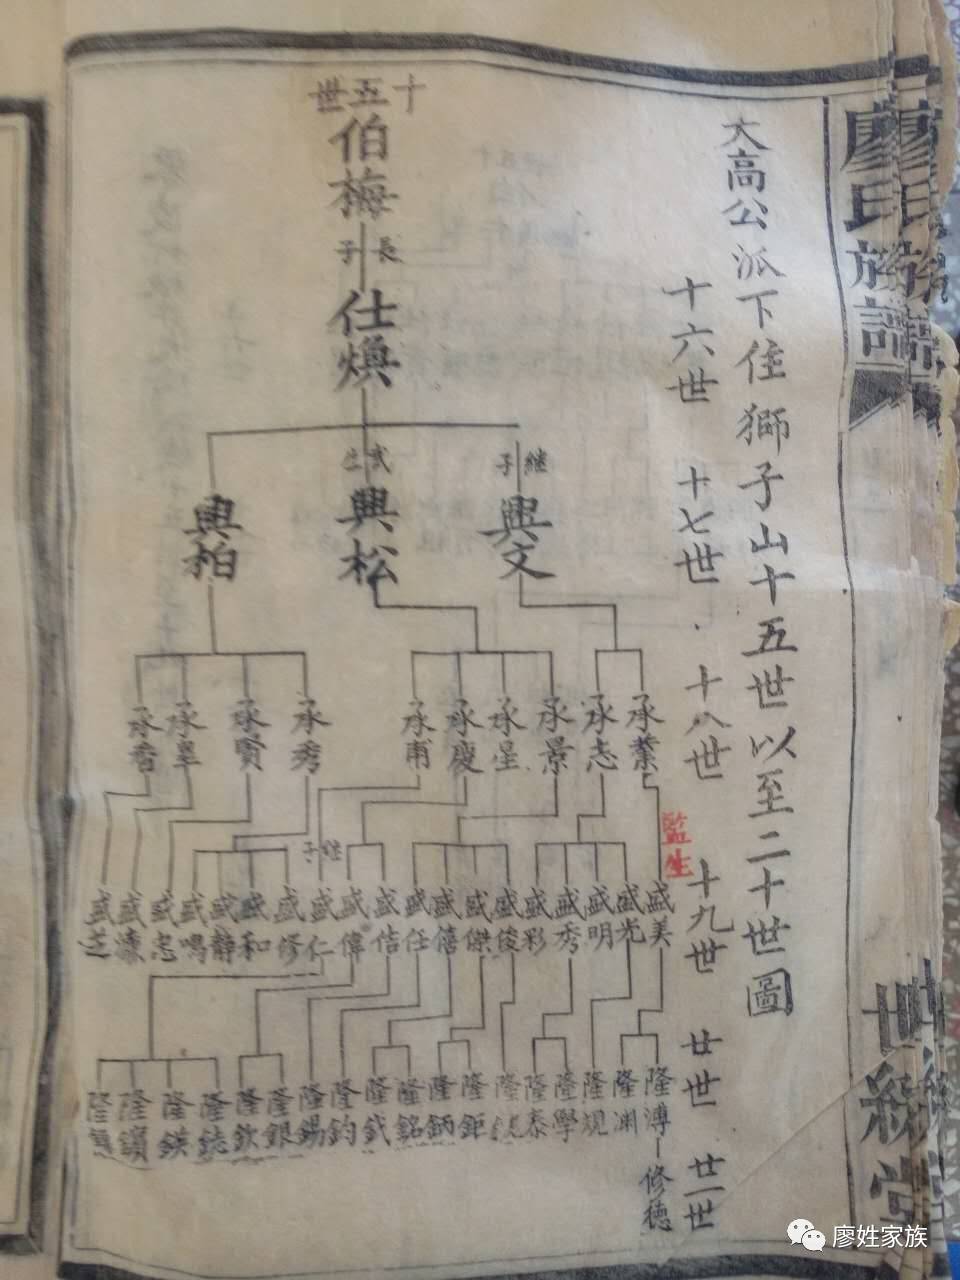 廖氏族譜
世綵堂
大高公派下住獅子山十五世以至二十世圖
十五世
伯梅
長子
仕煥
十六世
継子
興文
武生
興松
興柏
十七世
承業
承志
承景
承星
承慶
承甫
承秀
承賢
承皇
承香
十八世
監生
継子
盛美
盛光
盛明
盛秀
盛彩
盛俊
盛傑
盛僖
盛任
盛佶
盛偉
盛仁
盛修
盛和
盛靜
盛鳴
盛忠
盛濂
盛芝
十九世
隆溥
隆淵
隆規
隆學
隆泰
隆
隆鉅
隆鈵
隆銘
隆鉞
隆鈞
隆錫
隆銀
隆欽
隆鋕
隆鍈
隆鑌
隆
廿世
修德
廿一世
廖姓家族